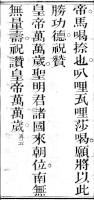 帝馬喝捺也叭哩瓦哩莎喝願將以此
勝功德祝贊
皇帝萬萬歲聖明君諸國來朝位南無
無量壽祝贊皇帝萬萬歲